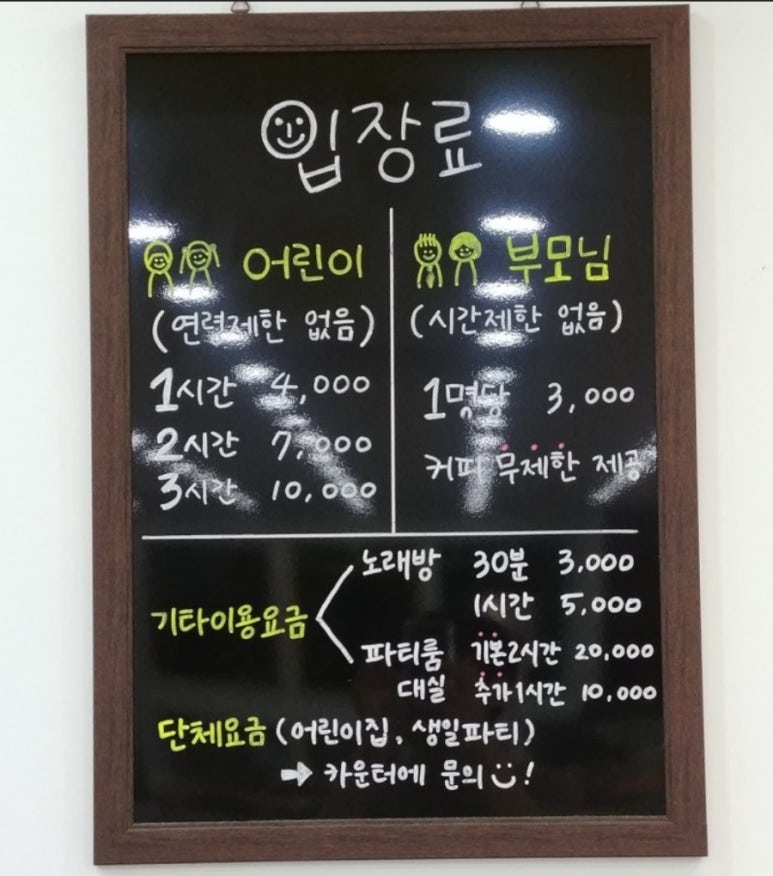 입장료
어린이
(연령제한 없음)
1시간 4,000
2시간 7,000
3시간 10,000
부모님
(시간제한 없음)
1명당 3,000
커피 무제한 제공
기타이용요금
노래방 30분 3,000
1시간 5,000
파티룸 기본2시간 20,000
대실 추가1시간 10,000
단체요금 (어린이집, 생일파티)
➡ 카운터에 문의 !